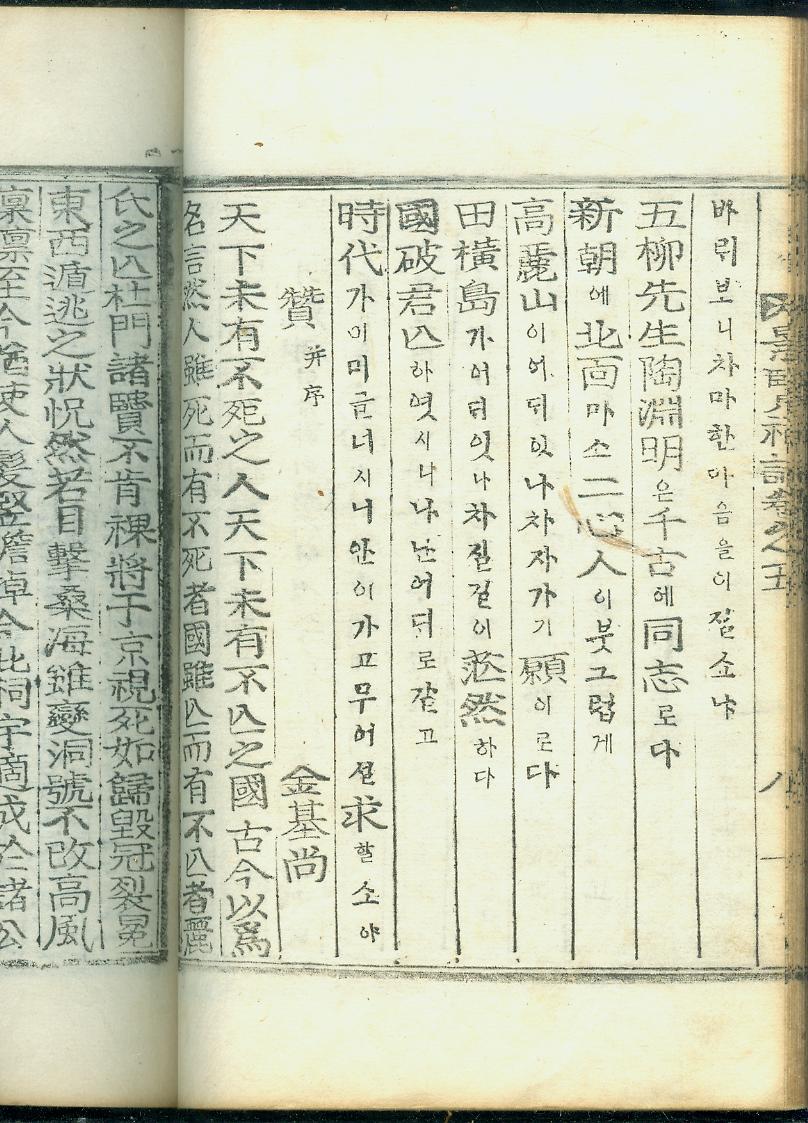 卷之五
八
바뤼보니차마한마음을이질소냐
五柳先生陶淵明은千古에同志로다
新朝에北面마소二心人이붓그럽게
高麗山이어듸잇나차자가기願이로다
田橫島가어듸잇나차질길이茫然하다
國破君亾하엿시니나난어듸로갈고
時代가이믜글너시니안이가고무어설求할소야
贊 并序
金基尚
天下未有不死之人天下未有不亾之國古今以爲
名言然人雖死而有不死者國雖亾而有不亾者麗
氏之亾杜門諸賢不肯裸將于京視死如歸毁冠裂冕
東西遁逃之狀怳然若目擊桑海雖變洞號不改高風
凜凜至今猶使人髮竪 今此祠宇適成於諸公